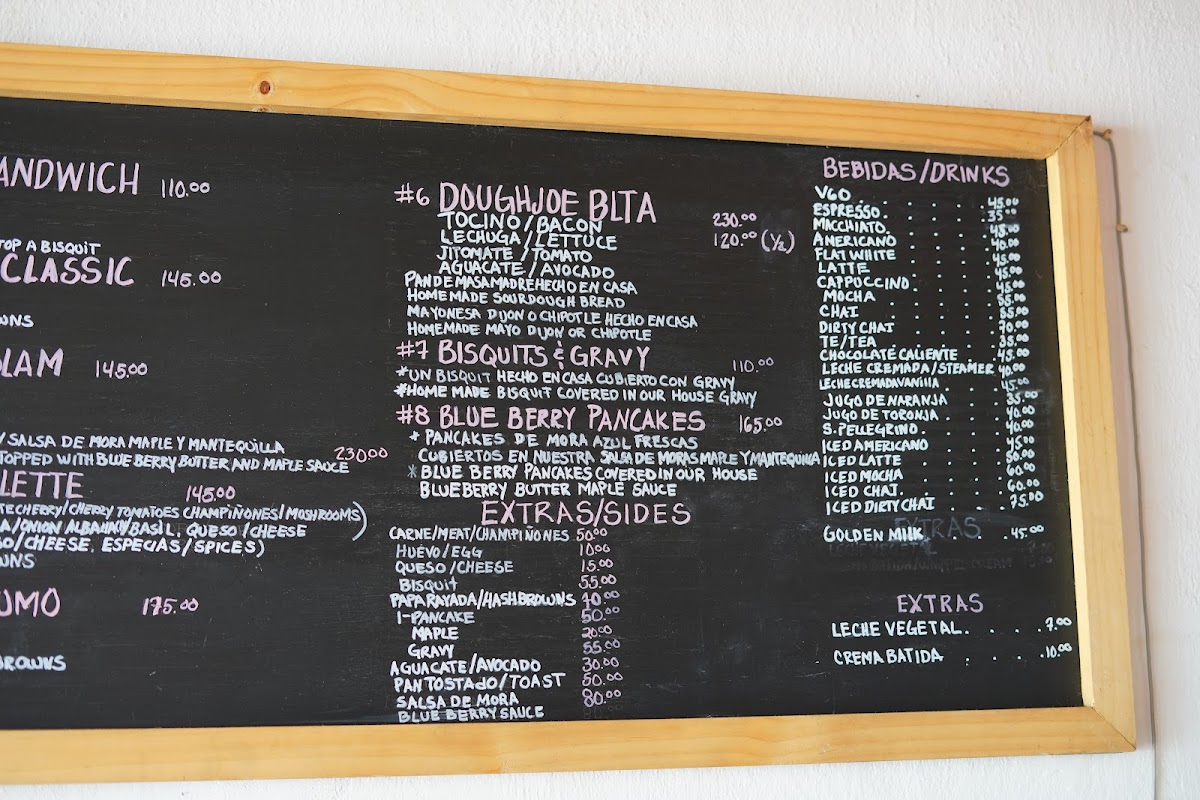 ANDWICH 110.00
TOP A BISQUIT
CLASSIC 145.00
WNS
LAM 145.00
/ SALSA DE MORA MAPLE Y MANTEQUILLA
TOPPED WITH BLUE BERRY BUTTER AND MAPLE SAUCE 230.00
LETTE 145.00
TECHERRY/CHERRY TOMATOES CHAMPIÑONES/MOSHROOMS)
A/ONION ALBAHAN/BASIL, QUESO/CHEESE
SO/CHEESE, ESPECIAS/SPICES)
WNS
UMO 175.00
BROWNS
#6 DOUGHJOE BLTA
TOCINO/BACON 230.00
LECHUGA/LETTUCE 120.00 (½)
JITOMATE/TOMATO
AGUACATE/AVOCADO
PAN DE MASA MADRE HECHO EN CASA
HOMEMADE SOURDOUGH BREAD
MAYONESA DIJON O CHIPOTLE HECHO EN CASA
HOMEMADE MAYO DIJON OR CHIPOTLE
#7 BISQUITS & GRAVY 110.00
*UN BISQUIT HECHO EN CASA CUBIERTO CON GRAVY
*HOME MADE BISQUIT COVERED IN OUR HOUSE GRAVY
#8 BLUE BERRY PANCAKES 165.00
* PANCAKES DE MORA AZUL FRESCAS
CUBIERTOS EN NUESTRA SALSA DE MORAS MAPLE Y MANTEQUILLA
* BLUE BERRY PANCAKES COVERED IN OUR HOUSE
BLUEBERRY BUTTER MAPLE SAUCE
EXTRAS/SIDES
CARNE/MEAT/CHAMPIÑONES 50.00
HUEVO/EGG 10.00
QUESO/CHEESE 15.00
BISQUIT 55.00
PAPA RAYADA/HASHBROWNS 40.00
1-PANCAKE 50.00
MAPLE 20.00
GRAVY 55.00
AGUACATE/AVOCADO 30.00
PAN TOSTADO/TOAST 50.00
SALSA DE MORA 80.00
BLUE BERRY SAUCE
BEBIDAS/DRINKS
VGO . . . . . . 45.00
ESPRESSO . . . . . 35.00
MACCHIATO . . . . . 45.00
AMERICANO . . . . 40.00
FLAT WHITE . . . . 45.00
LATTE . . . . . 45.00
CAPPUCCINO . . . . 45.00
MOCHA . . . . . 55.00
CHAI . . . . . 55.00
DIRTY CHAI . . . . 70.00
TE/TEA . . . . . 35.00
CHOCOLATE CALIENTE . . 45.00
LECHE CREMADA/STEAMER 40.00
LECHE CREMADA VANILLA . . 45.00
JUGO DE NARANJA . . . 35.00
JUGO DE TORONJA . . . 40.00
S. PELLEGRINO . . . . 40.00
ICED AMERICANO . . . 45.00
ICED LATTE . . . . 50.00
ICED MOCHA . . . . 60.00
ICED CHAI . . . . . 60.00
ICED DIRTY CHAI . . . 75.00
EXTRAS
GOLDEN MILK . . . 45.00
EXTRAS
LECHE VEGETAL . . . . 7.00
CREMA BATIDA . . . 10.00